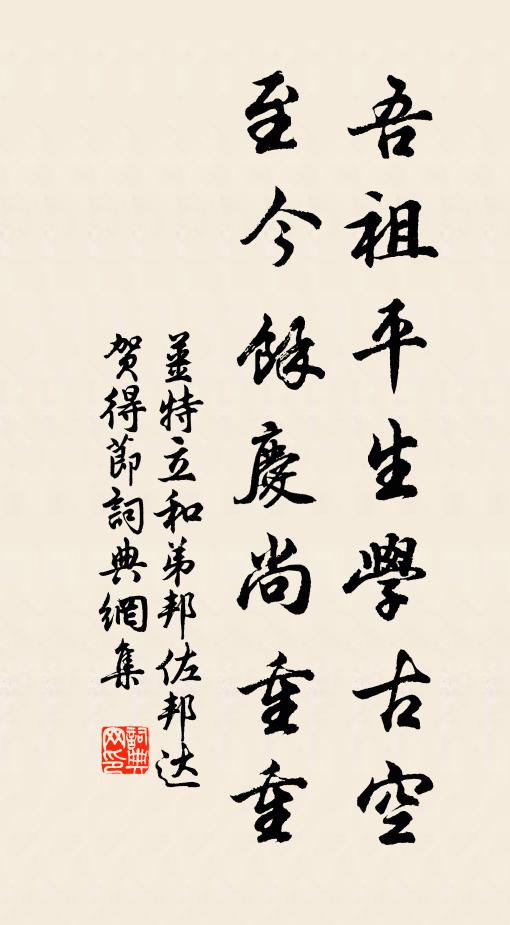 吾祖平生學古空
至今餘慶尚重重
姜特立和弟邦佐邦达
贺得節詞典網集
詞典网印